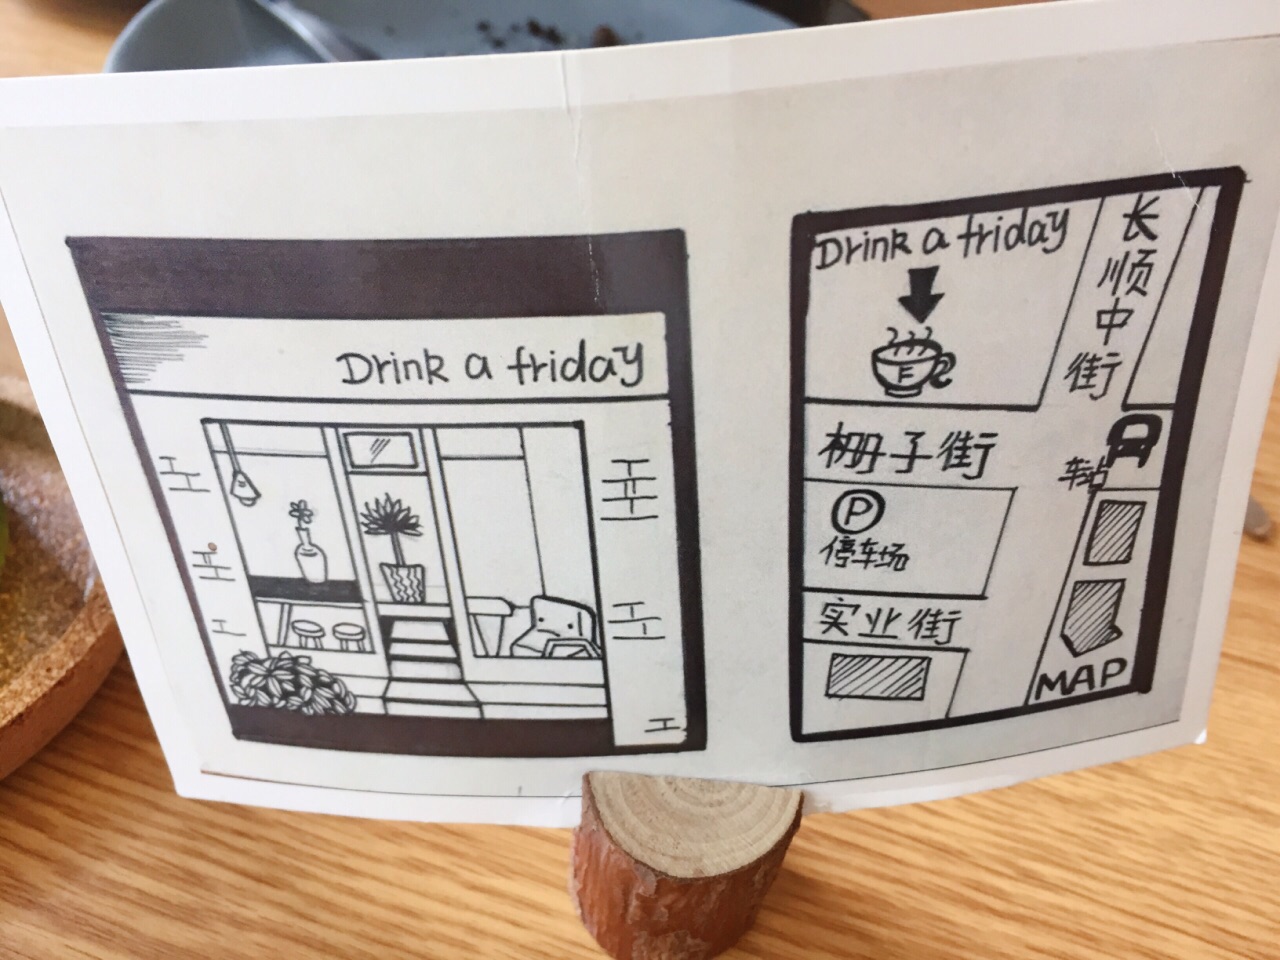 Drink a friday
Drink a friday
E
长顺中街
栅子街
车站
P
停车场
实业街
MAP